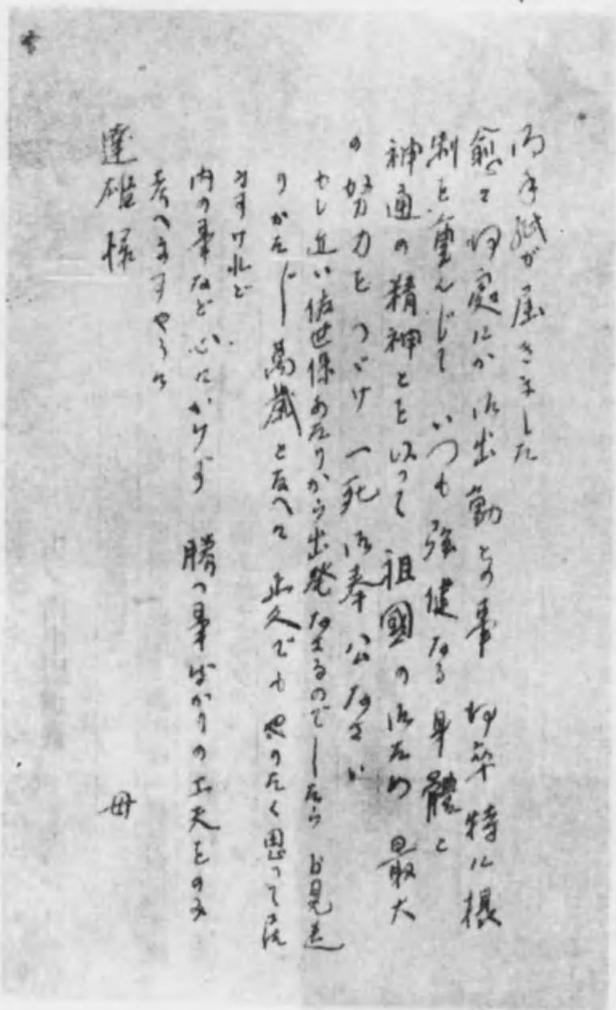 御手紙が届きました
愈々何處にか御出動との事 何卒特に摂
制を重んじて いつも強健なる身體と
神通の精神とを以って 祖國の御ため 最大
の努力をつゞけ 一死御奉公なさい
もし近い佐世保あたりから出発なさるのでしたら お見送
りかたじ 萬歳ととなへに 正久でも やりたく思って居
ますけれど
内の事など心にかけず 勝つ事ばかりの工夫をのみ
考へますやうに
達雄様
母